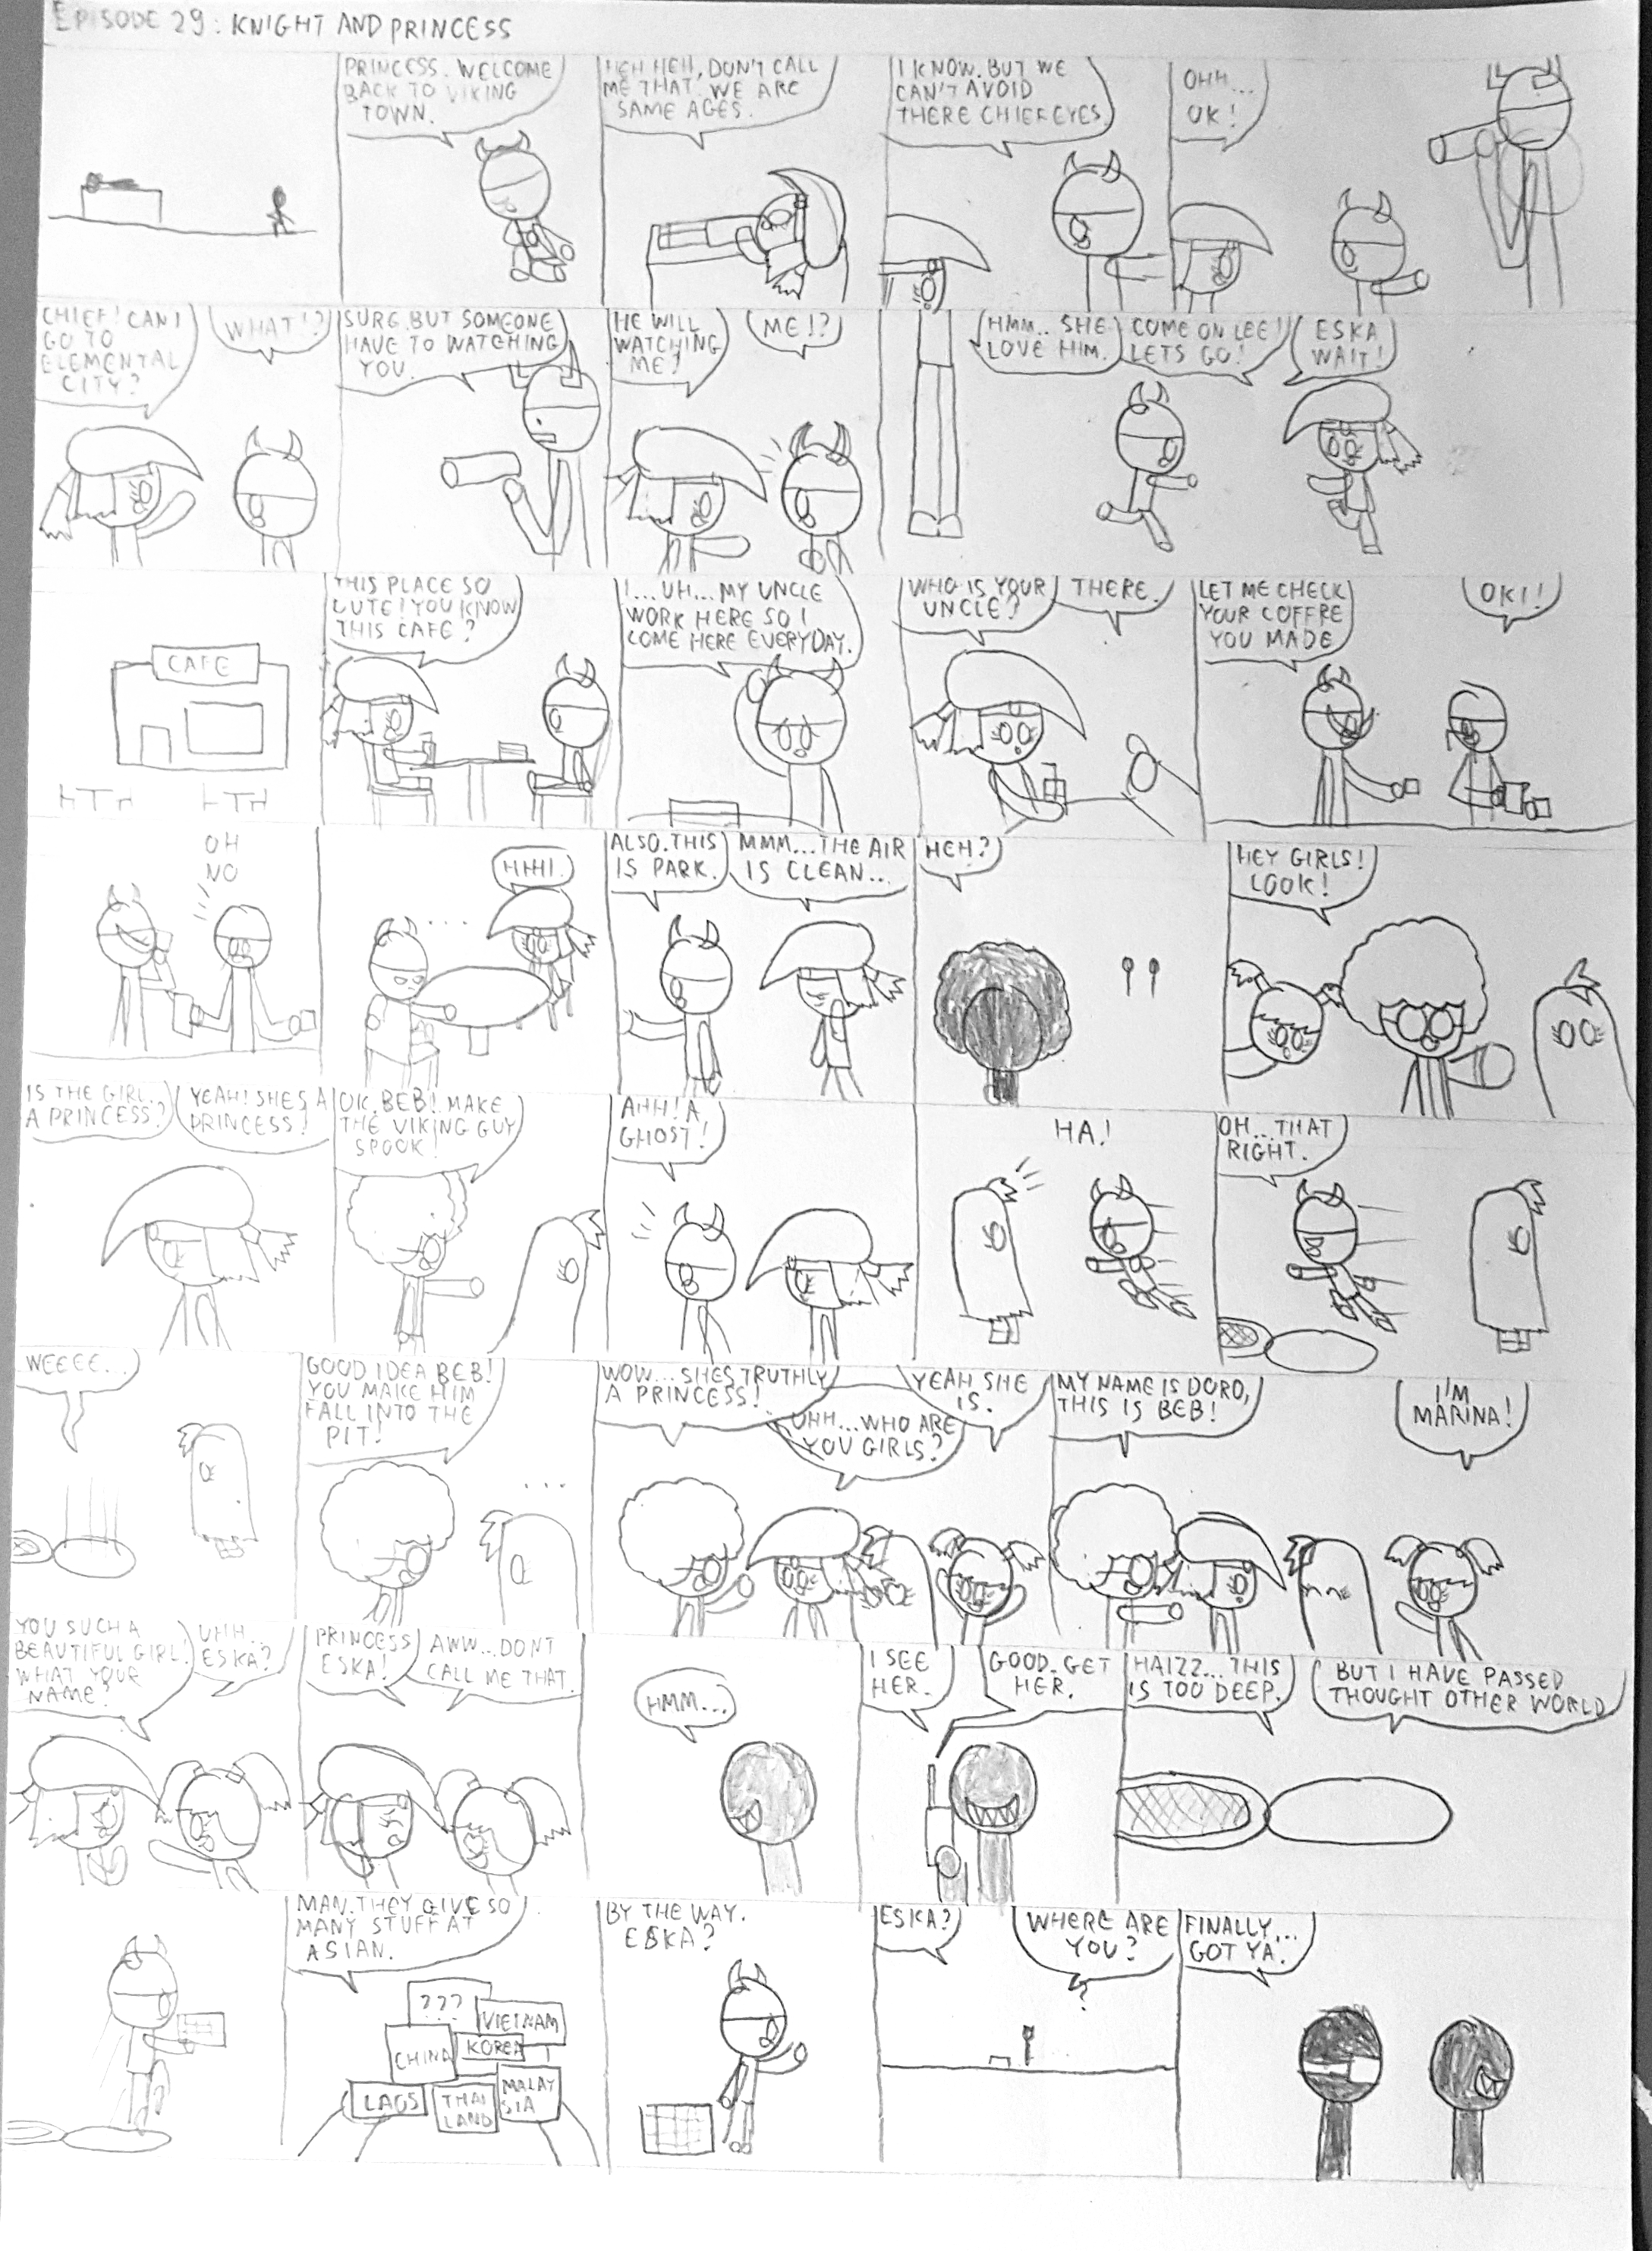 EPISODE 29: KNIGHT AND PRINCESS
PRINCESS. WELCOME
BACK TO VIKING
TOWN.
HEH HEH, DON'T CALL
ME THAT. WE ARE
SAME AGES.
I KNOW. BUT WE
CAN'T AVOID
THERE CHIEF EYES.
OHH...
OK!
CHIEF! CAN I
GO TO
ELEMENTAL
CITY?
WHAT!?
SURE. BUT SOMEONE
HAVE TO WATCHING
YOU.
HE WILL
WATCHING
ME?
ME!?
HMM.. SHE
LOVE HIM.
COME ON LEE!
LETS GO!
ESKA
WAIT!
CAFE
THIS PLACE SO
CUTE! YOU KNOW
THIS CAFE?
I...UH...MY UNCLE
WORK HERE SO I
COME HERE EVERYDAY.
WHO IS YOUR
UNCLE?
THERE.
LET ME CHECK
YOUR COFFRE
YOU MADE
OKI!
OH
NO
...
HIHI.
ALSO. THIS
IS PARK.
MMM...THE AIR
IS CLEAN...
HEH?
HEY GIRLS!
LOOK!
IS THE GIRL
A PRINCESS?
YEAH! SHES A
PRINCESS!
OK. BEB! MAKE
THE VIKING GUY
SPOOK!
AHH! A
GHOST!
HA!
OH...THAT
RIGHT.
WEEEE...
GOOD IDEA BEB!
YOU MAKE HIM
FALL INTO THE
PIT!
...
WOW...SHES TRUTHLY
A PRINCESS!
YEAH SHE
IS.
UHH...WHO ARE
YOU GIRLS?
MY NAME IS DORO,
THIS IS BEB!
I'M
MARINA!
YOU SUCH A
BEAUTIFUL GIRL!
WHAT YOUR
NAME?
UHH..
ESKA?
PRINCESS
ESKA!
AWW...DONT
CALL ME THAT.
HMM...
I SEE
HER.
GOOD. GET
HER.
HAIZZ...THIS
IS TOO DEEP.
BUT I HAVE PASSED
THOUGHT OTHER WORLD
MAN. THEY GIVE SO
MANY STUFF AT
ASIAN.
???
VIETNAM
CHINA
KOREA
LAOS
THAI
LAND
MALAY
SIA
BY THE WAY.
ESKA?
ESKA?
WHERE ARE
YOU?
?
FINALLY...
GOT YA.